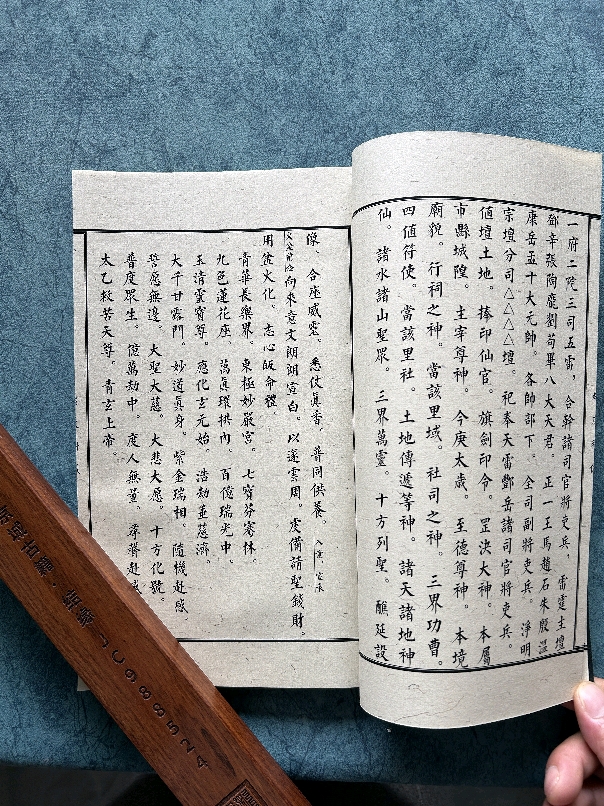 一府二院三司五雷，合幹諸司官將吏兵，雷霆主壇
鄧辛張陶龐劉苟畢八大天君。正一王馬趙石朱殷溫
康岳孟十大元帥。各帥部下。全司副將吏兵。淨明
宗壇分司△△△△壇。祀奉天雷酆岳諸司官將吏兵。
値壇土地。捧印仙官。旗劍印令。罡決大神。本屬
市縣城隍。主宰尊神。今庚太歲。至德尊神。本境
廟貌。行祠之神。當該里域。社司之神。三界功曹。
四値符使。當該里社。土地傳遞等神。諸天諸地神
仙。諸水諸山聖眾。三界萬靈。十方列聖。醮延設
像。合座威靈。悉仗真香。普同供養。入意，宣疏
向來意文朗朗宣白。以遂雲周。虔備請聖錢財。
用憑火化。志心皈命禮。
青華長樂界。東極妙嚴宮。七寶芬騫林。
九色蓮花座。萬真環拱內。百億瑞光中。
玉清靈寶尊。應化玄元始。浩劫垂慈濟。
大千甘露門。妙道真身。紫金瑞相。隨機赴感
誓愿無邊。大聖大慈。大悲大愿。十方化號。
普度眾生。億萬劫中。度人無量。尋聲赴感
太乙救苦天尊。青玄上帝。
JC9885524